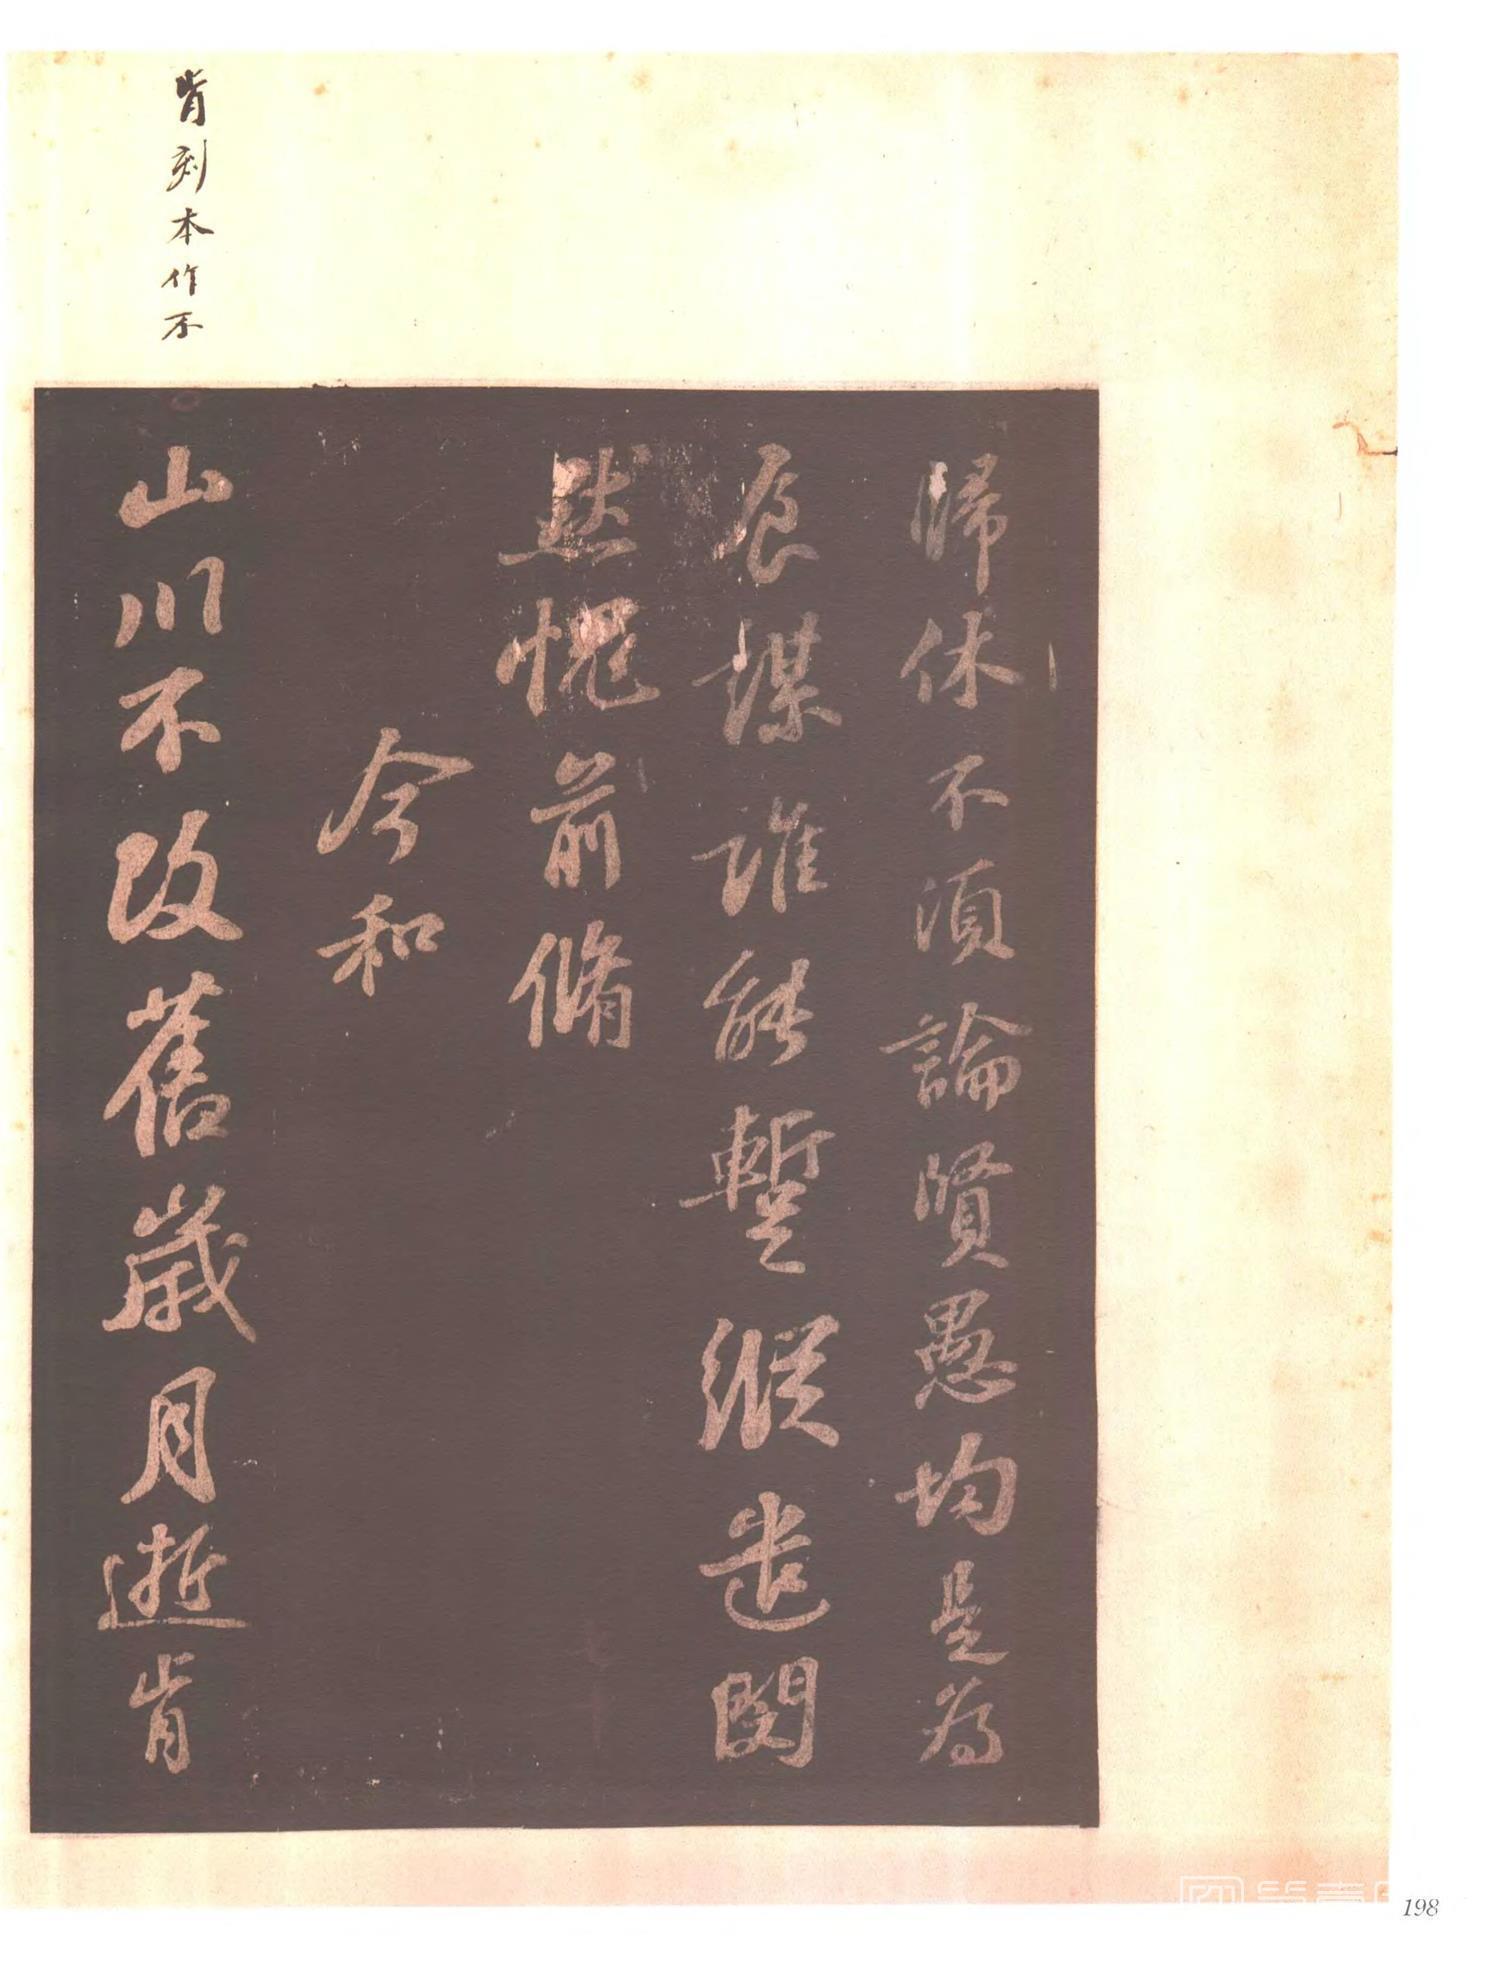 肯刻本作不
歸休不須論賢愚均是為
食謀誰能蹔縱遣閔
然愧前脩
今和
山川不改舊歲月逝肯
198